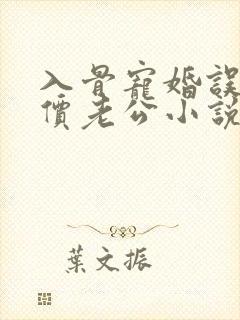 入骨寵婚誤
價老公小説
葉文振